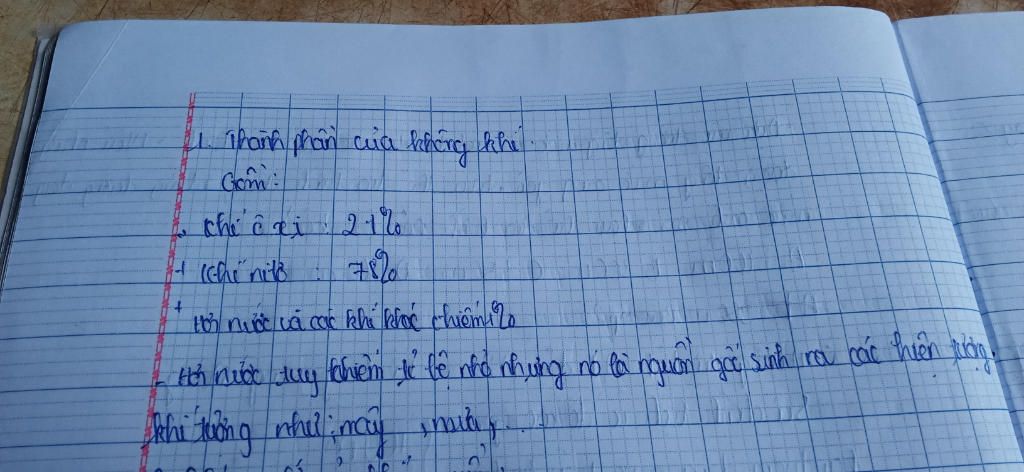 1. Thành phần của không khí.
Gồm:
+ Khí ô xi : 21%
+ Khí nitơ : 78%
+ Hơi nước và các khí khác chiếm 1%
- Hơi nước tuy chiếm tỉ lệ nhỏ nhưng nó là nguồn gốc sinh ra các hiện tượng
khí tượng như: mây, mưa, ...